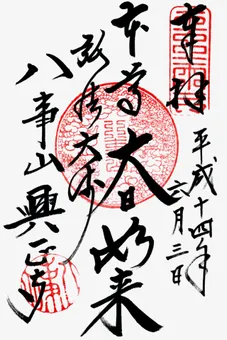 奉拝
平成十四年
六月三日
本尊 大日如来
弘法大師
八事山 興正寺